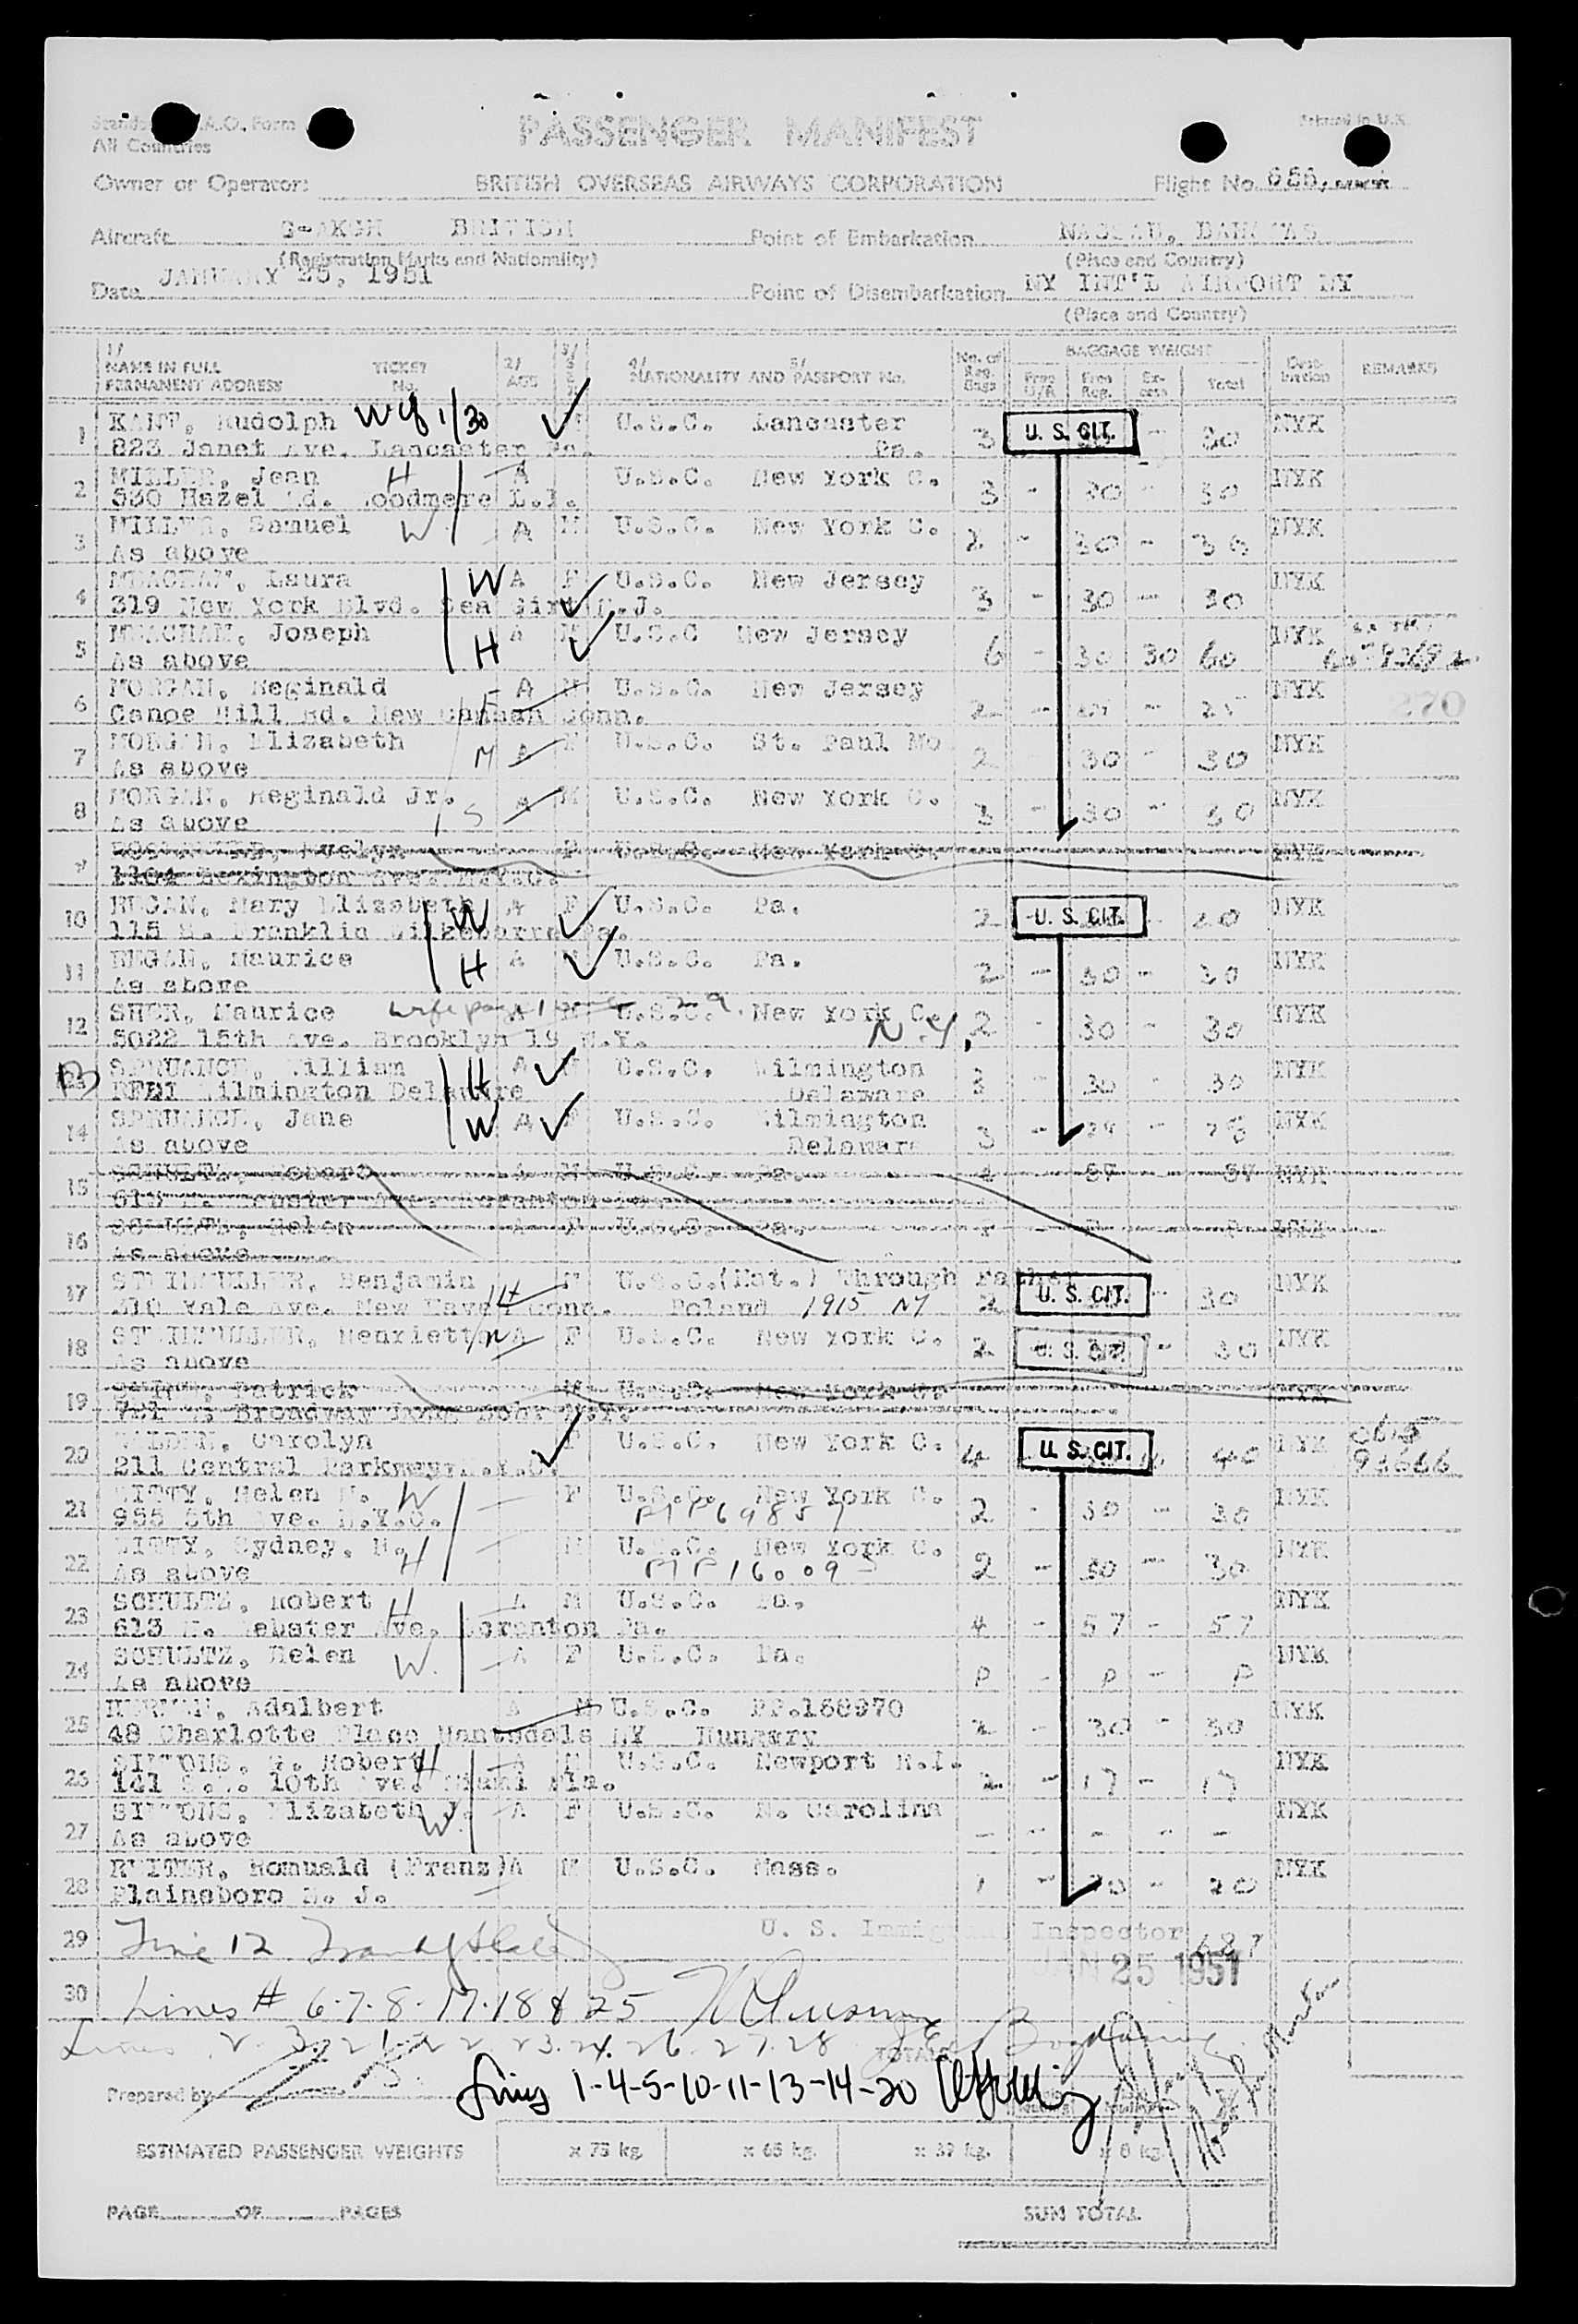 All Countries
Form
PASSENGER MANIFEST
Printed in U.K.
Owner or Operator: BRITISH OVERSEAS AIRWAYS CORPORATION Flight No.
Aircraft BRITISH Point of Embarkation NASSAU, BAHAMAS
(Registration Marks and Nationality) (Place and Country)
Date JANUARY 25, 1951 Point of Disembarkation NY INT'L AIRPORT NY
(Place and Country)
1/ NAME IN FULL TICKET 2/ 3/ 4/ 5/ No. of BAGGAGE WEIGHT
PERMANENT ADDRESS No. AGE SEX NATIONALITY AND PASSPORT No. Reg. Bags Free U/R Free Reg. Ex-cess Total Desti-nation REMARKS
1 KANT, Rudolph 1/30 U.S.C. Lancaster 3 U. S. CIT. - 30 NYK
823 Janet Ave. Lancaster Pa. Pa.
2 MILLER, Jean H A U.S.C. New York C. 3 - 30 - 30 NYK
530 Hazel Rd. Woodmere L.I.
3 MILLER, Samuel W A M U.S.C. New York C. 2 - 30 - 30 NYK
As above
4 MEACHAM, Laura W A F U.S.C. New Jersey 3 - 30 - 30 NYK
319 New York Blvd. Sea Girt N.J.
5 MEACHAM, Joseph H A M U.S.C New Jersey 6 - 30 30 60 NYK
As above
6 MORGAN, Reginald F A M U.S.C. New Jersey 2 - - NYK
Canoe Hill Rd. New Canaan Conn. 270
7 MORGAN, Elizabeth M A F U.S.C. St. Paul Mo 2 - 30 - 30 NYK
As above
8 MORGAN, Reginald Jr. S A M U.S.C. New York C. 3 - 30 - 30 NYK
As above
Evelyn F U.S.C. New York C. NYK
Lexington Ave. N.Y.C.
10 REGAN, Mary Elizabeth W A F U.S.C. Pa. 2 U. S. CIT. - 20 NYK
115 S. Franklin Wilkesbarre Pa.
11 REGAN, Maurice H A M U.S.C. Pa. 2 - 30 - 30 NYK
As above
12 SHOR, Maurice wife page 1 A M U.S.C. New York C. 2 - 30 - 30 NYK
5022 15th Ave. Brooklyn 19 N.Y. N.Y.
13 SPRUANCE, William H A M U.S.C. Wilmington 3 - 30 - 30 NYK
RFD1 Wilmington Delaware Delaware
14 SPRUANCE, Jane W A F U.S.C. Wilmington 3 - NYK
As above Delaware
15 SCHULTZ, Robert A M U.S.C. Pa. 4 57 57 NYK
613 N. Webster Ave. Scranton Pa.
16 SCHULTZ, Helen A F U.S.C. Pa. NYK
As above
17 Benjamin H M U.S.C.(Nat.) Through Father 2 U. S. CIT. - 30 NYK
310 Yale Ave. New Haven Conn. Poland 1915 NY
18 Henrietta W A F U.S.C. New York C. 2 U. S. CIT. - 30 NYK
As above
19 Patrick M U.S.C. New York C. NYK
Broadway N.Y.
20 WALDEN, Carolyn F U.S.C. New York C. 4 U. S. CIT. 40 NYK
211 Central Parkway N.Y.C.
21 WITTY, Helen W F U.S.C. New York C. 2 - 30 - 30 NYK
955 5th Ave. N.Y.C.
22 WITTY, Sydney, H M U.S.C. New York C. 2 - 30 - 30 NYK
As above
23 SCHULTZ, Robert H A M U.S.C. Pa. 4 - 57 - 57 NYK
613 N. Webster Ave. Scranton Pa.
24 SCHULTZ, Helen W. A F U.S.C. Pa. P - P - P NYK
As above
25 HERMAN, Adalbert A M U.S.C. PP.168970 2 - 30 - 30 NYK
48 Charlotte Place Hartsdale NY Hungary
26 SIMMONS, Robert H A M U.S.C. Newport R.I. 2 - 17 - 17 NYK
141 10th Ave. Miami Fla.
27 SIMMONS, Elizabeth W. A F U.S.C. N. Carolina - - - - - NYK
As above
28 REITER, Romuald (Franz) A M U.S.C. Mass. 1 - 20 - 20 NYK
Plainsboro N. J.
29 Line 12 U. S. Immig Inspector 687
JAN 25 1951
30 Lines # 6-7-8-17-18 & 25
Lines 2. 3. 21. 22 23. 24. 26. 27. 28
TOTAL
Prepared by
Lines 1-4-5-10-11-13-14-20
ESTIMATED PASSENGER WEIGHTS x 75 kg. x 65 kg. x 39 kg. x 8 kg.
PAGE OF PAGES SUM TOTAL